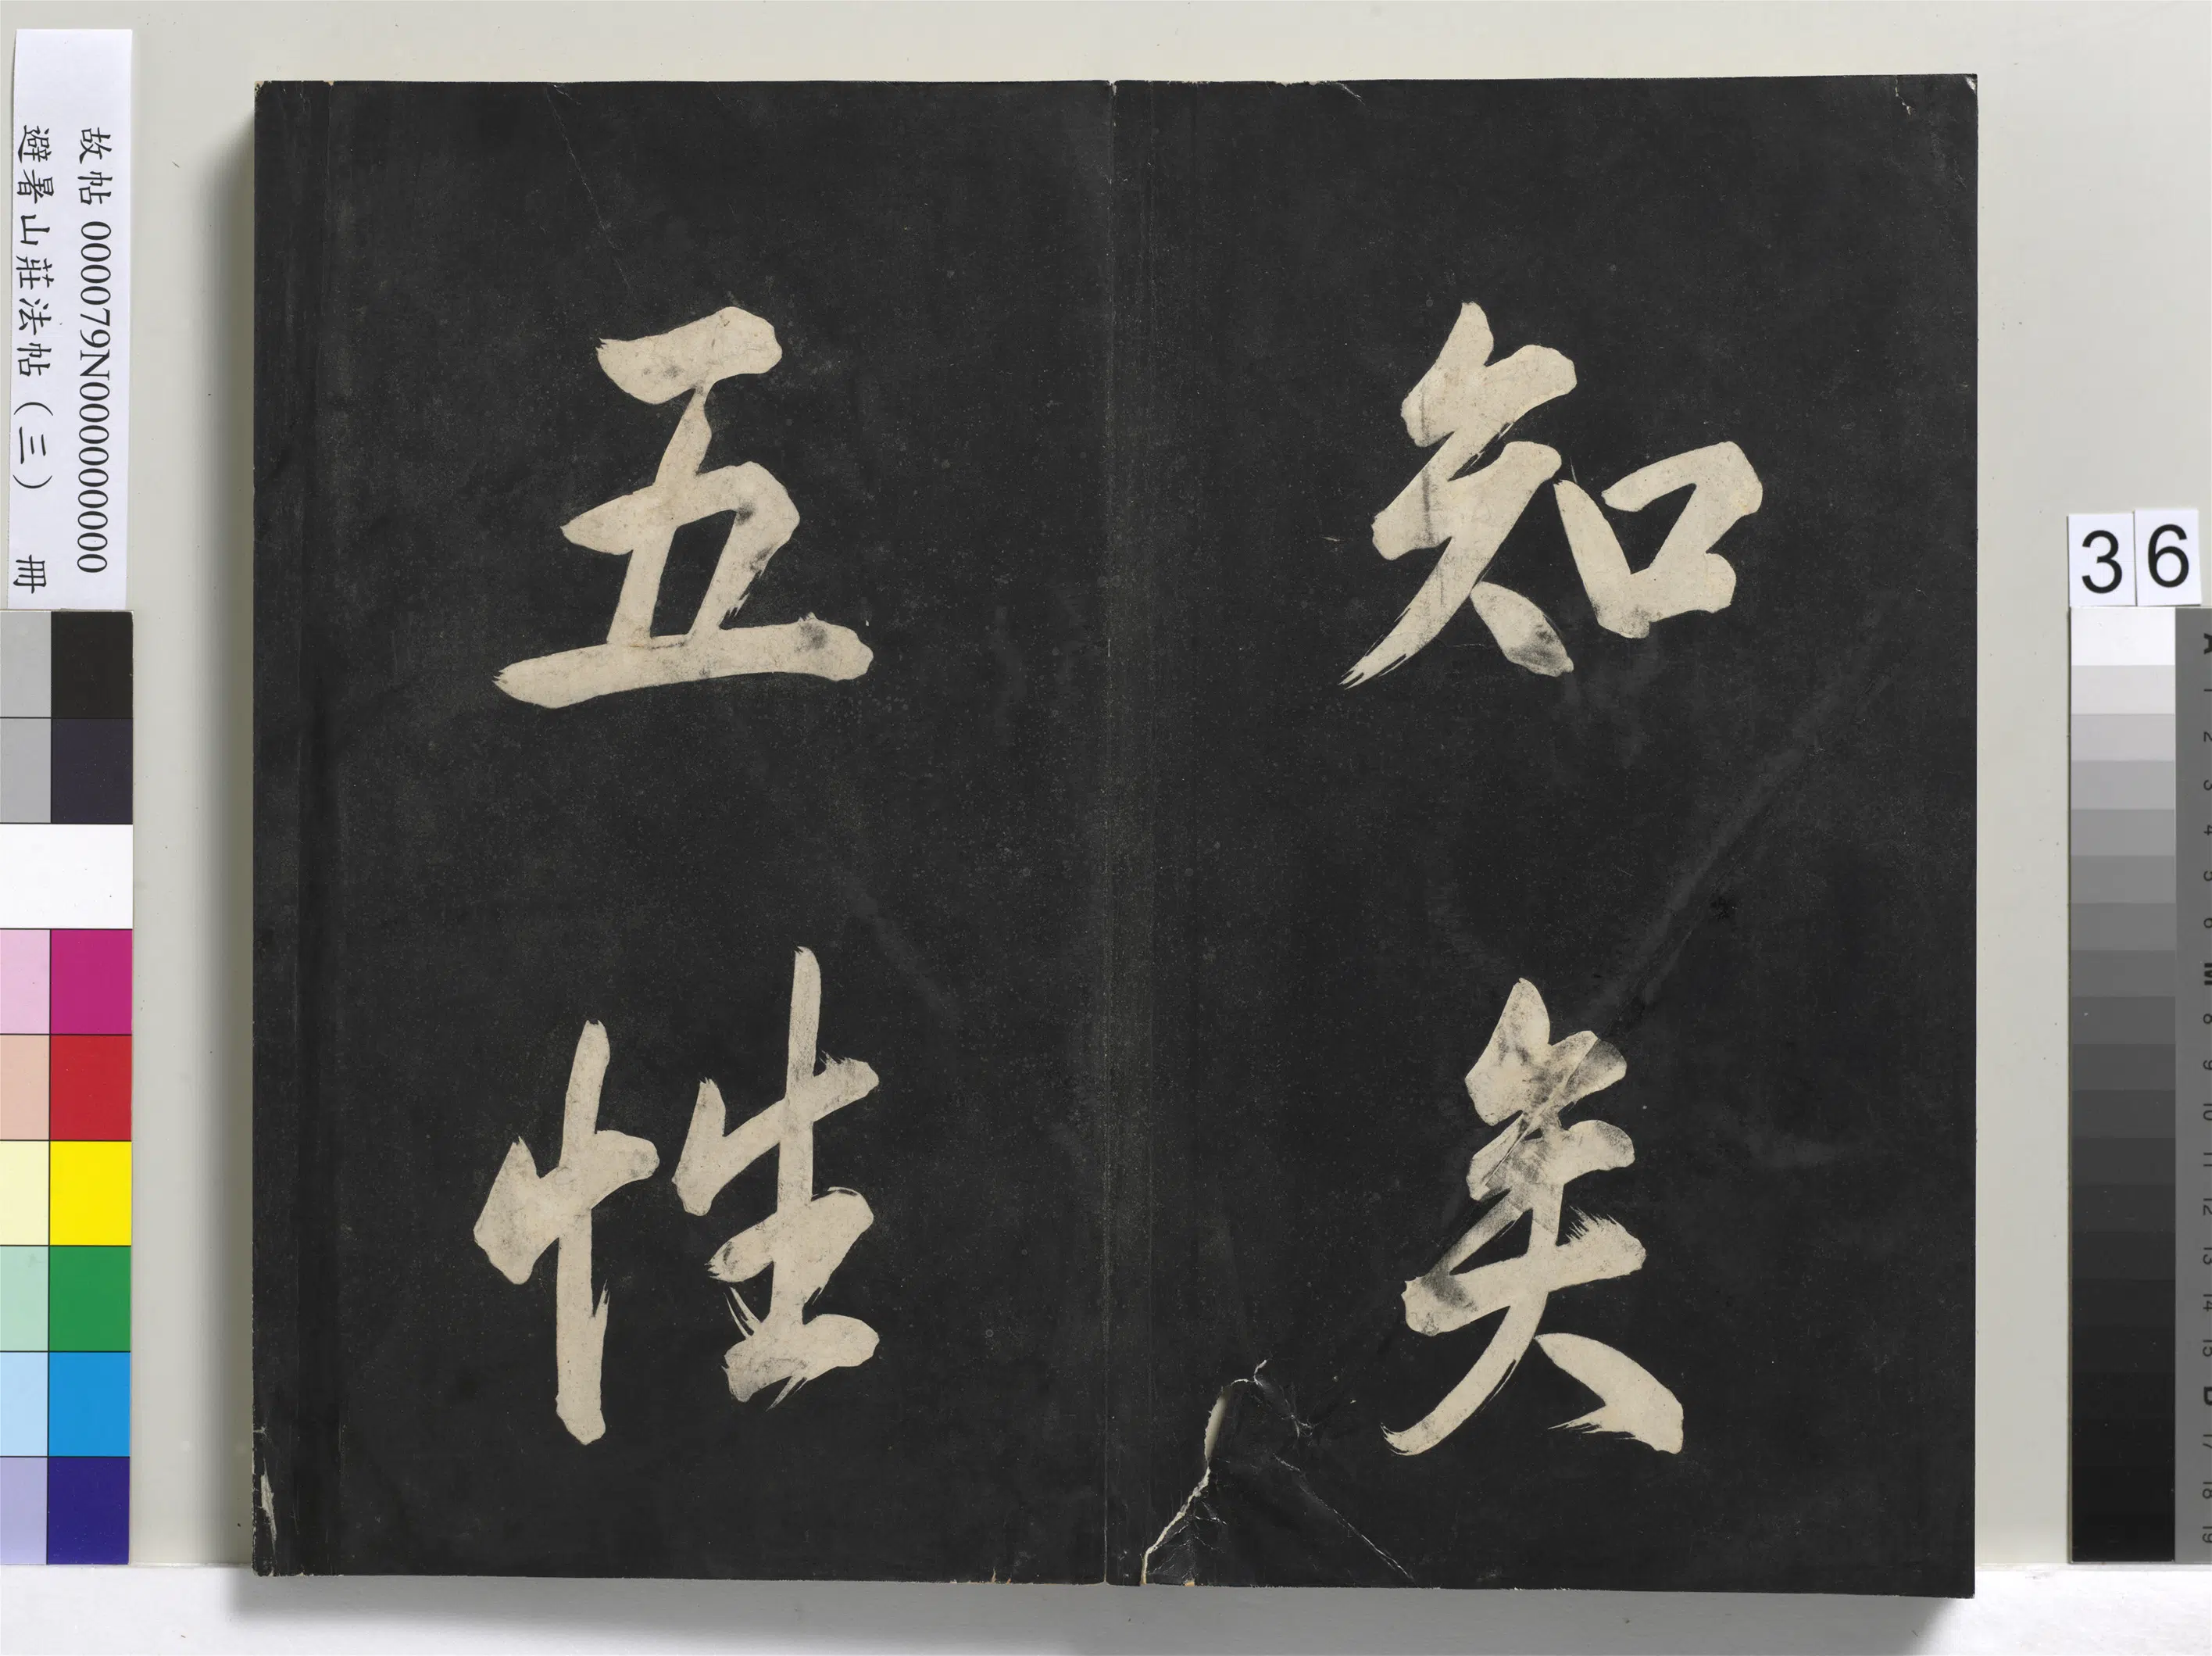 知矣
五性
故帖 000079N000000000
避暑山莊法帖（三） 冊
36
A
1
2
3
4
5
6
M
8
9
10
11
12
13
14
15
B
17
18
19